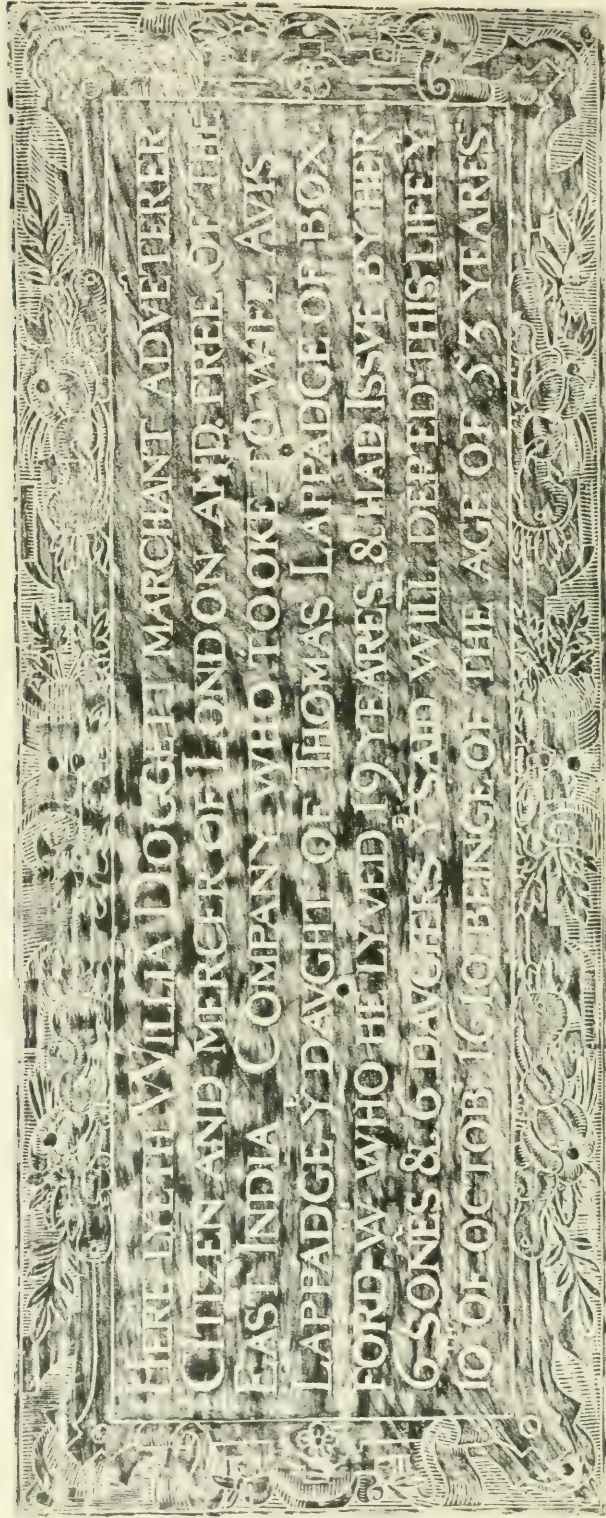 HERE LYETH WILLIĀ DOGGETT MARCHANT ADVĒTERER
CITIZEN AND MERCER OF LONDON AND FREE OF THE
EAST INDIA COMPANY WHO TOOKE TO WIFE AVIS
LAPPADGE Yᴱ DAVGHTᴱᴿ OF THOMAS LAPPADGE OF BOX
FORD Wᵀᴴ WHŌ HE LYVED 19 YEARES & HAD ISSVE BY HER
6 SONES & 6 DAVGTERS Yᴱ SAID WILL̄ DEP̄TED THIS LIFE Yᴱ
10ᵀᴴ OF OCTOB̄ᴱᴿ 1610 BEINGE OF THE AGE OF 53 YEARES